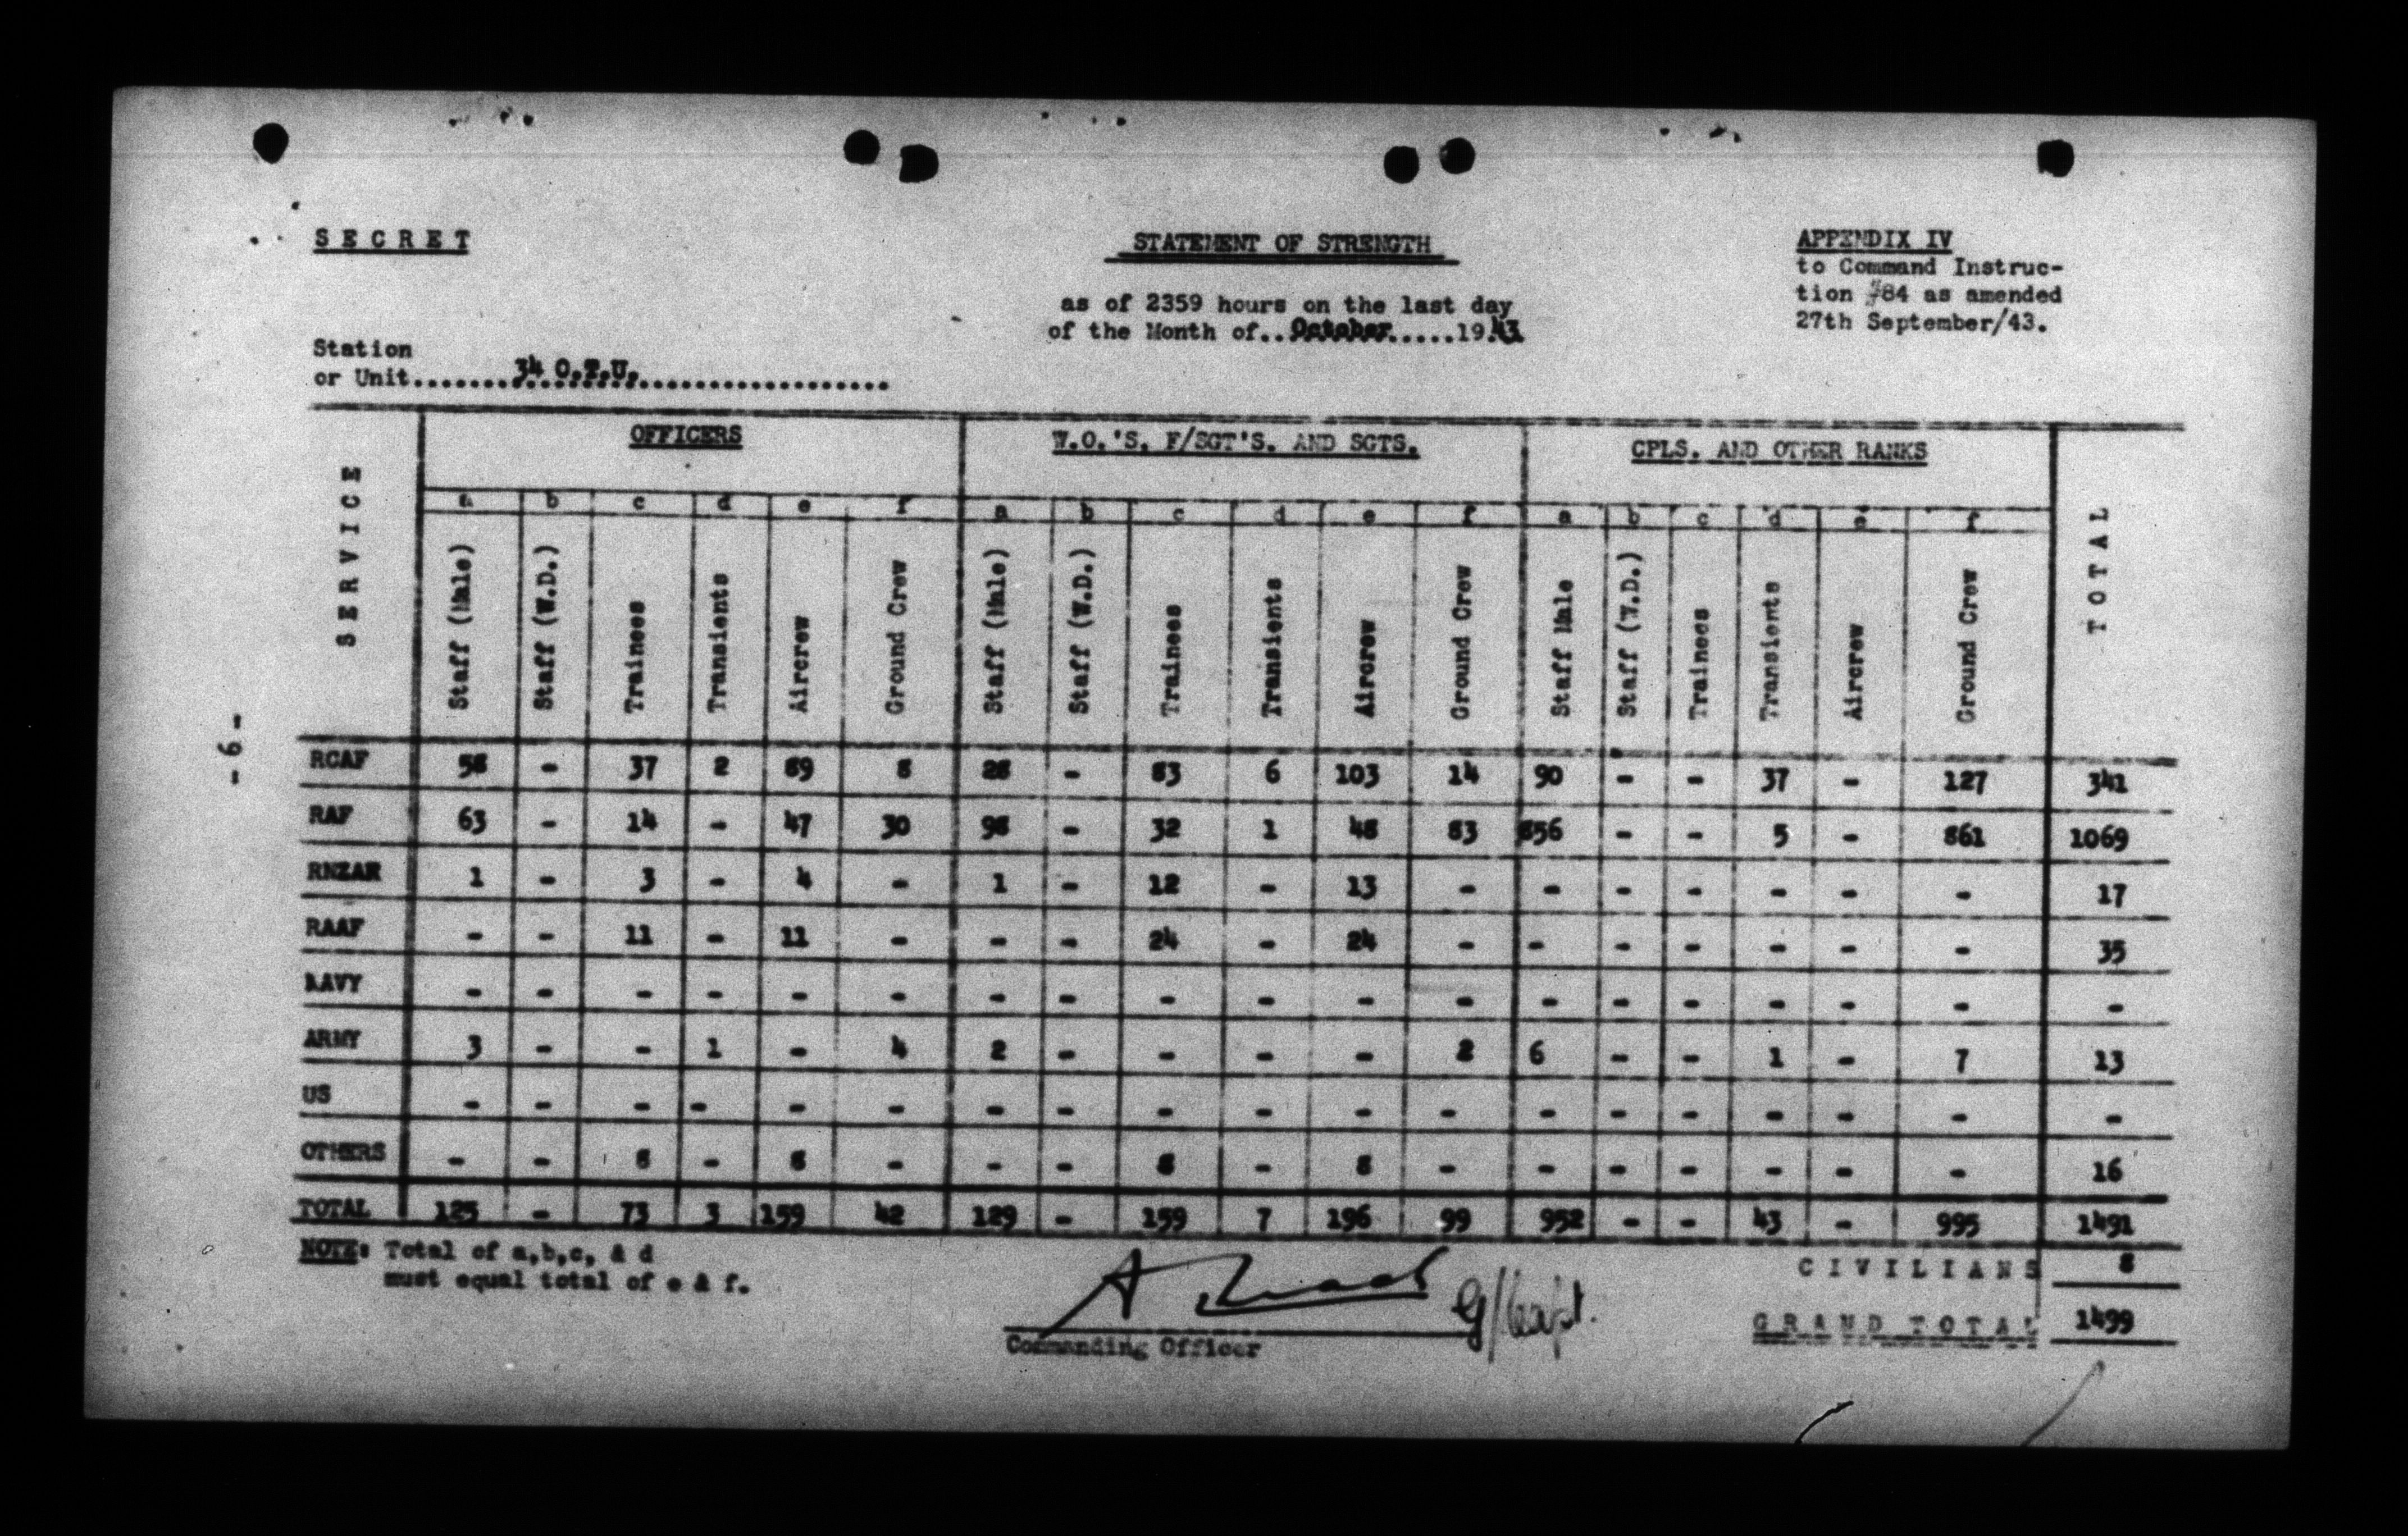 SECRET
STATEMENT OF STRENGTH
as of 2359 hours on the last day
of the Month of..October.....19.43
APPENDIX IV
to Command Instruc-
tion #84 as amended
27th September/43.
Station
or Unit.......34 O.T.U.......................
SERVICE OFFICERS W.O.'S. F/SGT'S. AND SGTS. CPLS. AND OTHER RANKS TOTAL
a b c d e f a b c d e f a b c d e f
Staff (Male) Staff (W.D.) Trainees Transients Aircrew Ground Crew Staff (Male) Staff (W.D.) Trainees Transients Aircrew Ground Crew Staff Male Staff (W.D.) Trainees Transients Aircrew Ground Crew
RCAF 58 - 37 2 89 8 28 - 83 6 103 14 90 - - 37 - 127 341
RAF 63 - 14 - 47 30 98 - 32 1 48 83 856 - - 5 - 861 1069
RNZAR 1 - 3 - 4 - 1 - 12 - 13 - - - - - - - 17
RAAF - - 11 - 11 - - - 24 - 24 - - - - - - - 35
NAVY - - - - - - - - - - - - - - - - - - -
ARMY 3 - - 1 - 4 2 - - - - 2 6 - - 1 - 7 13
US - - - - - - - - - - - - - - - - - - -
OTHERS - - 8 - 8 - - - 8 - 8 - - - - - - - 16
TOTAL 125 - 73 3 159 42 129 - 159 7 196 99 952 - - 43 - 995 1491
NOTE: Total of a,b,c, & d
must equal total of e & f.
CIVILIANS 8
G/Capt.
GRAND TOTAL 1499
Commanding Officer
-6-